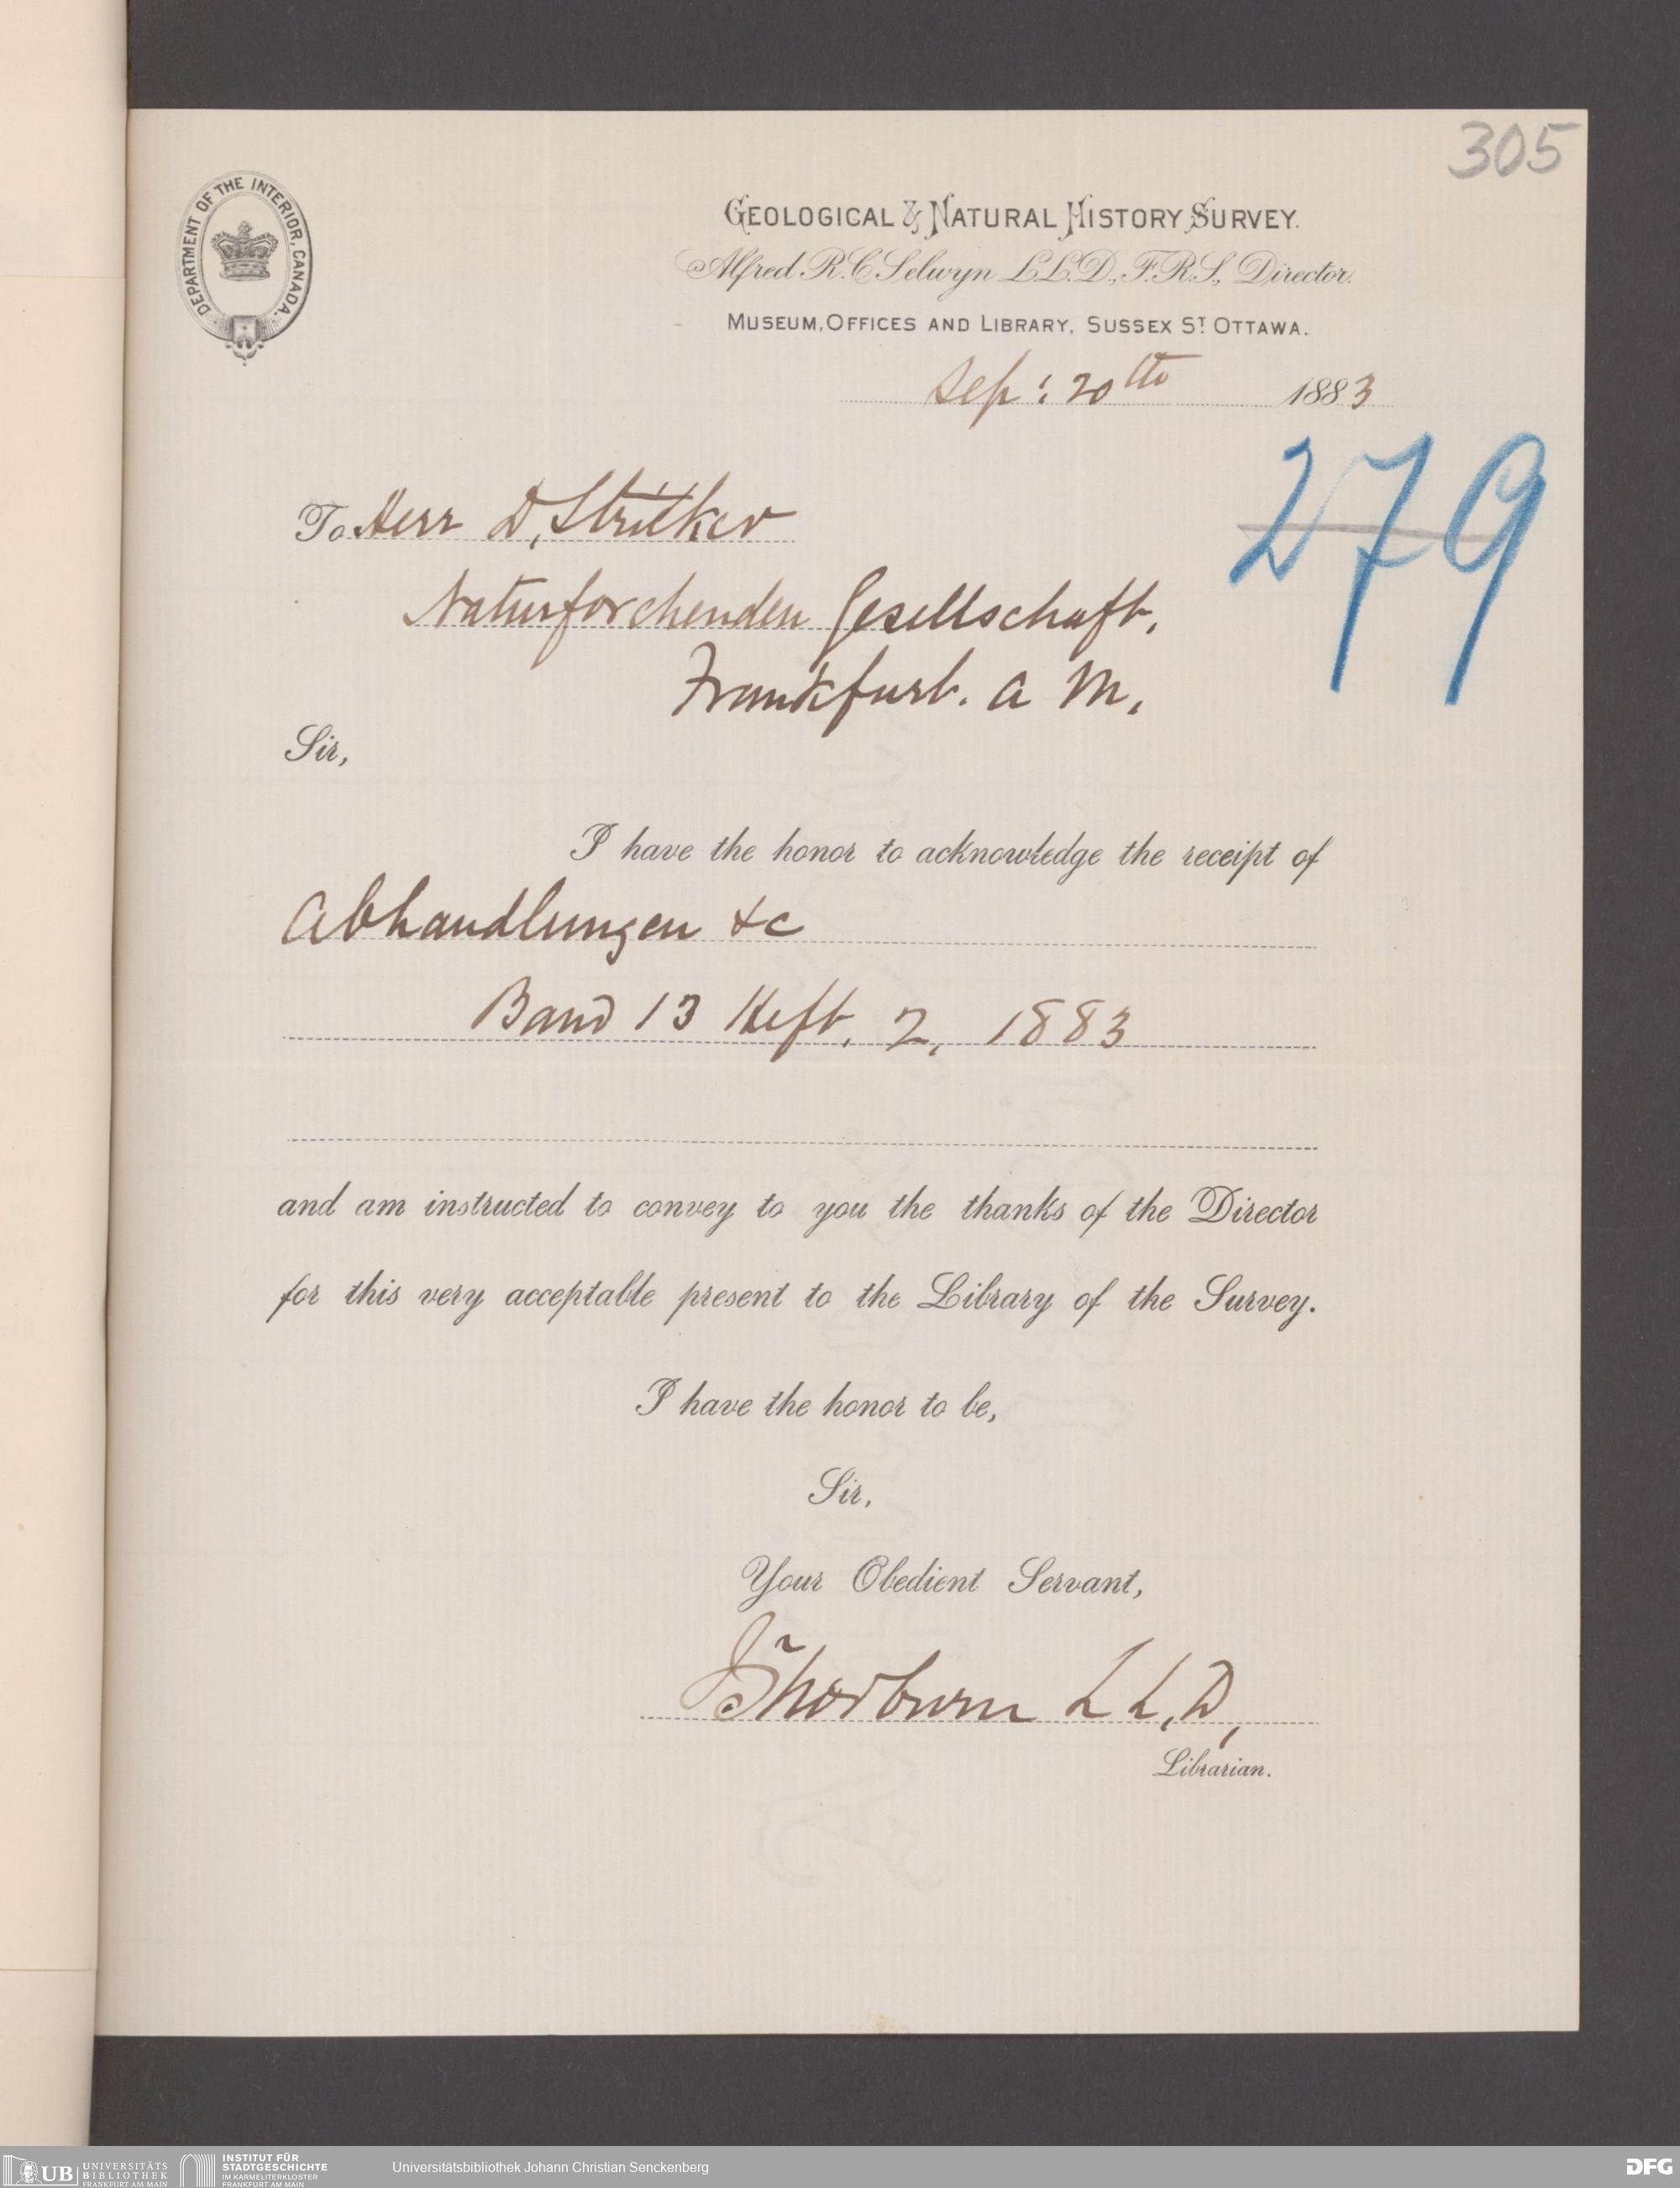 305
DEPARTMENT OF THE INTERIOR, CANADA.
GEOLOGICAL & NATURAL HISTORY SURVEY.
Alfred R. C. Selwyn LL.D., F.R.S., Director.
MUSEUM, OFFICES AND LIBRARY, SUSSEX ST OTTAWA.
Sep: 20th 1883
279
To Herr D, Stricker
Naturforchenden Gesellschaft,
Frankfurt. a M,
Sir,
I have the honor to acknowledge the receipt of
Abhandlungen &c
Band 13 Heft, 2, 1883
and am instructed to convey to you the thanks of the Director
for this very acceptable present to the Library of the Survey.
I have the honor to be,
Sir,
Your Obedient Servant,
J Thorburn LL,D,
Librarian.
UB UNIVERSITÄTS
BIBLIOTHEK
FRANKFURT AM MAIN
INSTITUT FÜR
STADTGESCHICHTE
IM KARMELITERKLOSTER
FRANKFURT AM MAIN
Universitätsbibliothek Johann Christian Senckenberg
DFG